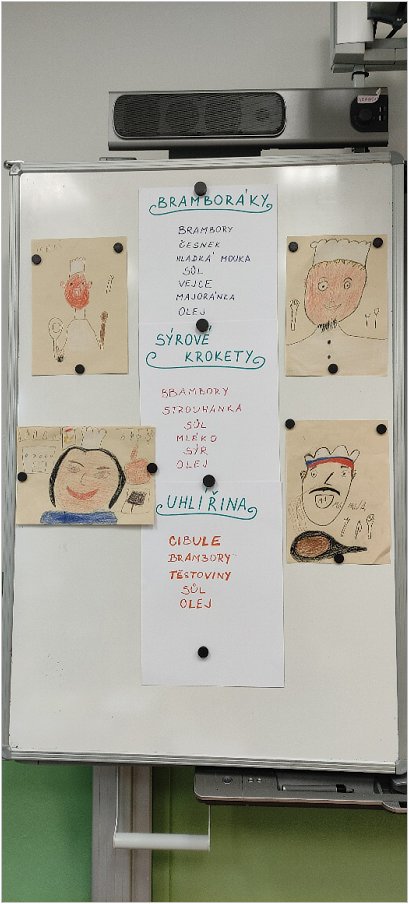 BRAMBORÁKY
BRAMBORY
ČESNEK
HLADKÁ MOUKA
SŮL
VEJCE
MAJORÁNKA
OLEJ
SÝROVÉ
KROKETY
BRAMBORY
STROUHANKA
SŮL
MLÉKO
SÝR
OLEJ
UHLÍŘINA
CIBULE
BRAMBORY
TĚSTOVINY
SŮL
OLEJ